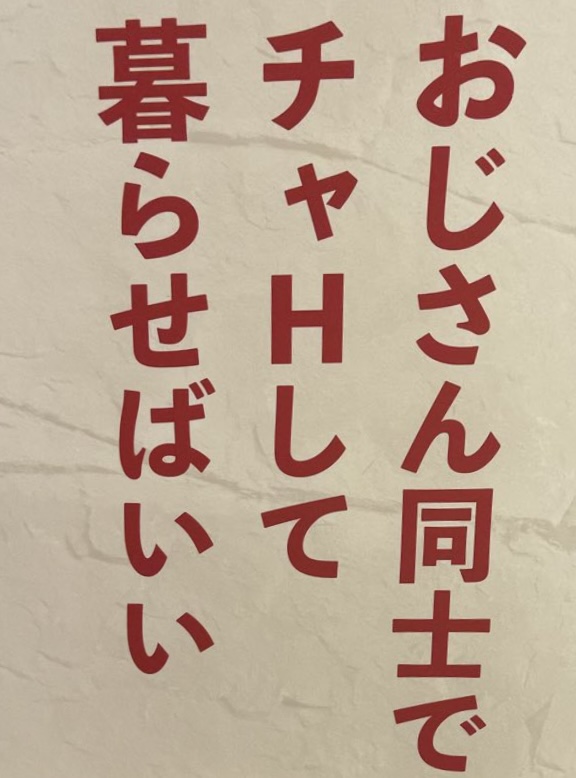 おじさん同士で
チャHして
暮らせばいい